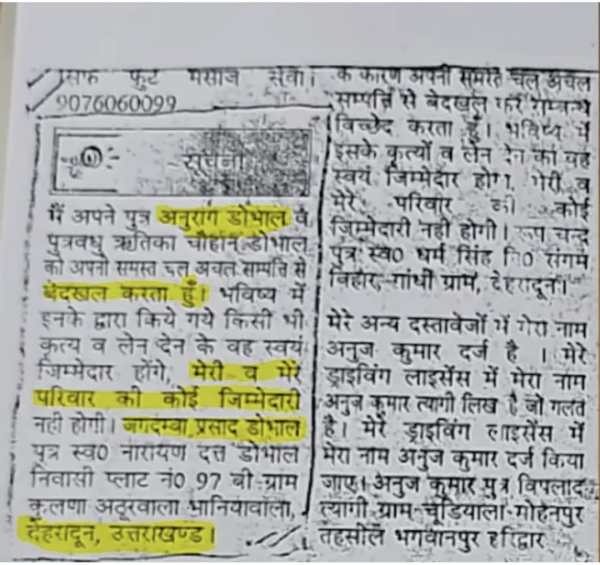 सिर्फ फुट मसाज सेवा।
9076060099
सूचना
मैं अपने पुत्र अनुराग डोभाल व
पुत्रवधु ऋतिका चौहान डोभाल
को अपनी समस्त चल अचल सम्पति से
बेदखल करता हूँ। भविष्य में
इनके द्वारा किये गये किसी भी
कृत्य व लेन देन के वह स्वयं
जिम्मेदार होंगे, मेरी व मेरे
परिवार की कोई जिम्मेदारी
नही होगी। जगदम्बा प्रसाद डोभाल
पुत्र स्व0 नारायण दत्त डोभाल
निवासी प्लाट नं0 97 बी-ग्राम
कलणा अठूरवाला भानियावाला,
देहरादून, उत्तराखण्ड।
के कारण अपनी समस्त चल अचल
सम्पत्ति से बेदखल कर सम्बन्ध
विच्छेद करता हूँ। भविष्य में
इसके कृत्यों व लेन देन का वह
स्वयं जिम्मेदार होगा, मेरी व
मेरे परिवार की कोई
जिम्मेदारी नही होगी। रूप चन्द
पुत्र स्व0 धर्म सिंह नि0 संगम
विहार, गांधी ग्राम, देहरादून।
मेरे अन्य दस्तावेजों में मेरा नाम
अनुज कुमार दर्ज है । मेरे
ड्राइविंग लाइसेंस में मेरा नाम
अनुज कुमार त्यागी लिख है जो गलत
है। मेरे ड्राइविंग लाइसेंस में
मेरा नाम अनुज कुमार दर्ज किया
जाए। अनुज कुमार पुत्र विपलाद
त्यागी ग्राम-चूडियाला-मोहनपुर
तहसील भगवानपुर हरिद्वार